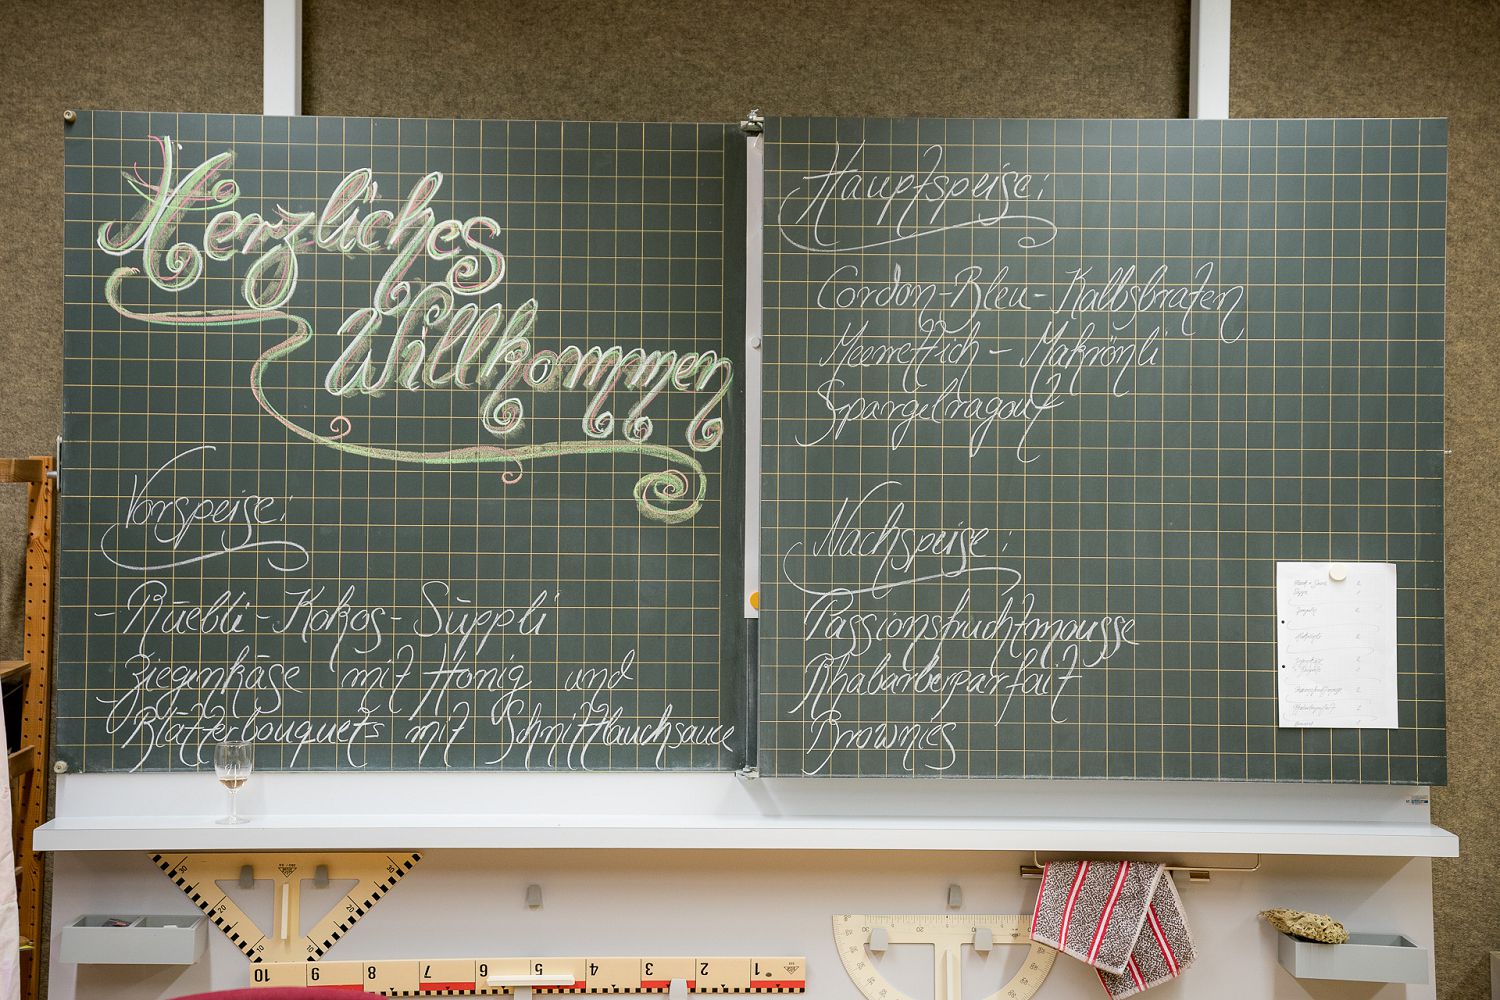 Herzliches
Willkommen
Vorspeise:
- Rüebli-Kokos-Süppli
Ziegenkäse mit Honig und
Blätterbouquets mit Schnittlauchsauce
Hauptspeise:
Cordon-Bleu-Kalbsbraten
Meerrettich - Makrönli
Spargelragout
Nachspeise:
Passionsfruchtmousse
Rhabarberparfait
Brownies
30
20
10
30
20
10
10
9
8
7
6
5
4
3
2
1